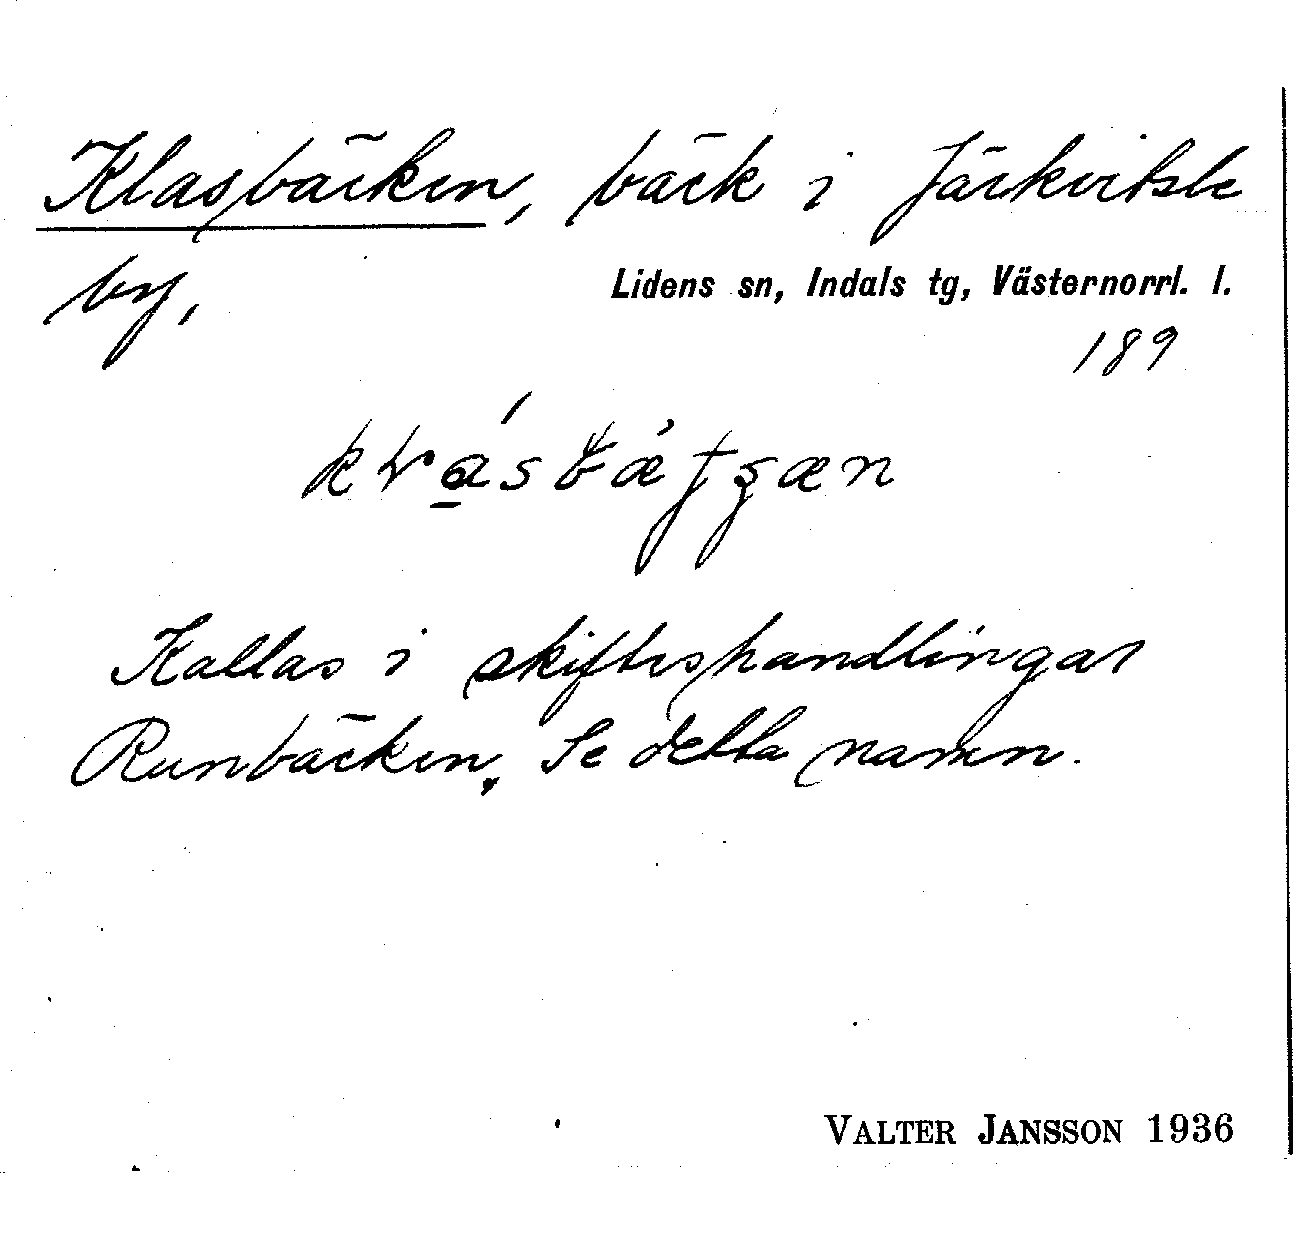 Klasbäcken, bäck i Järkvitsle
by,
Lidens sn, Indals tg, Västernorrl. l.
189
Kallas i skifteshandlingar
Runbäcken. Se detta namn.
VALTER JANSSON 1936